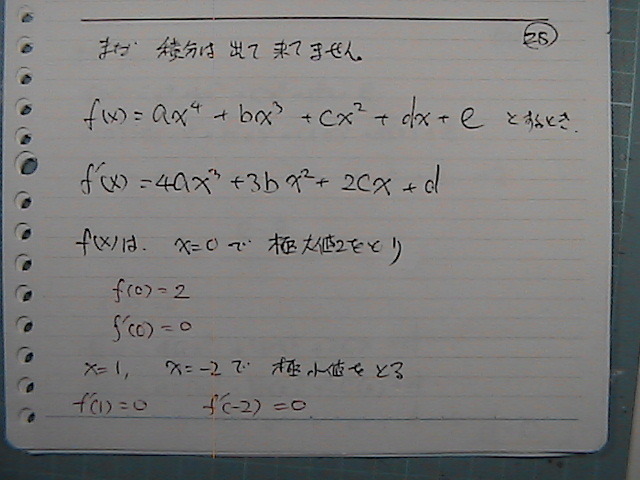 25
まだ 積分は 出て 来てません。
f(x) = ax⁴ + bx³ + cx² + dx + e とするとき.
f'(x) = 4ax³ + 3bx² + 2cx + d
f(x)は. x=0で 極大値2をとり
f(0) = 2
f'(0) = 0
x=1, x=-2で 極小値をとる
f'(1) = 0 f'(-2) = 0